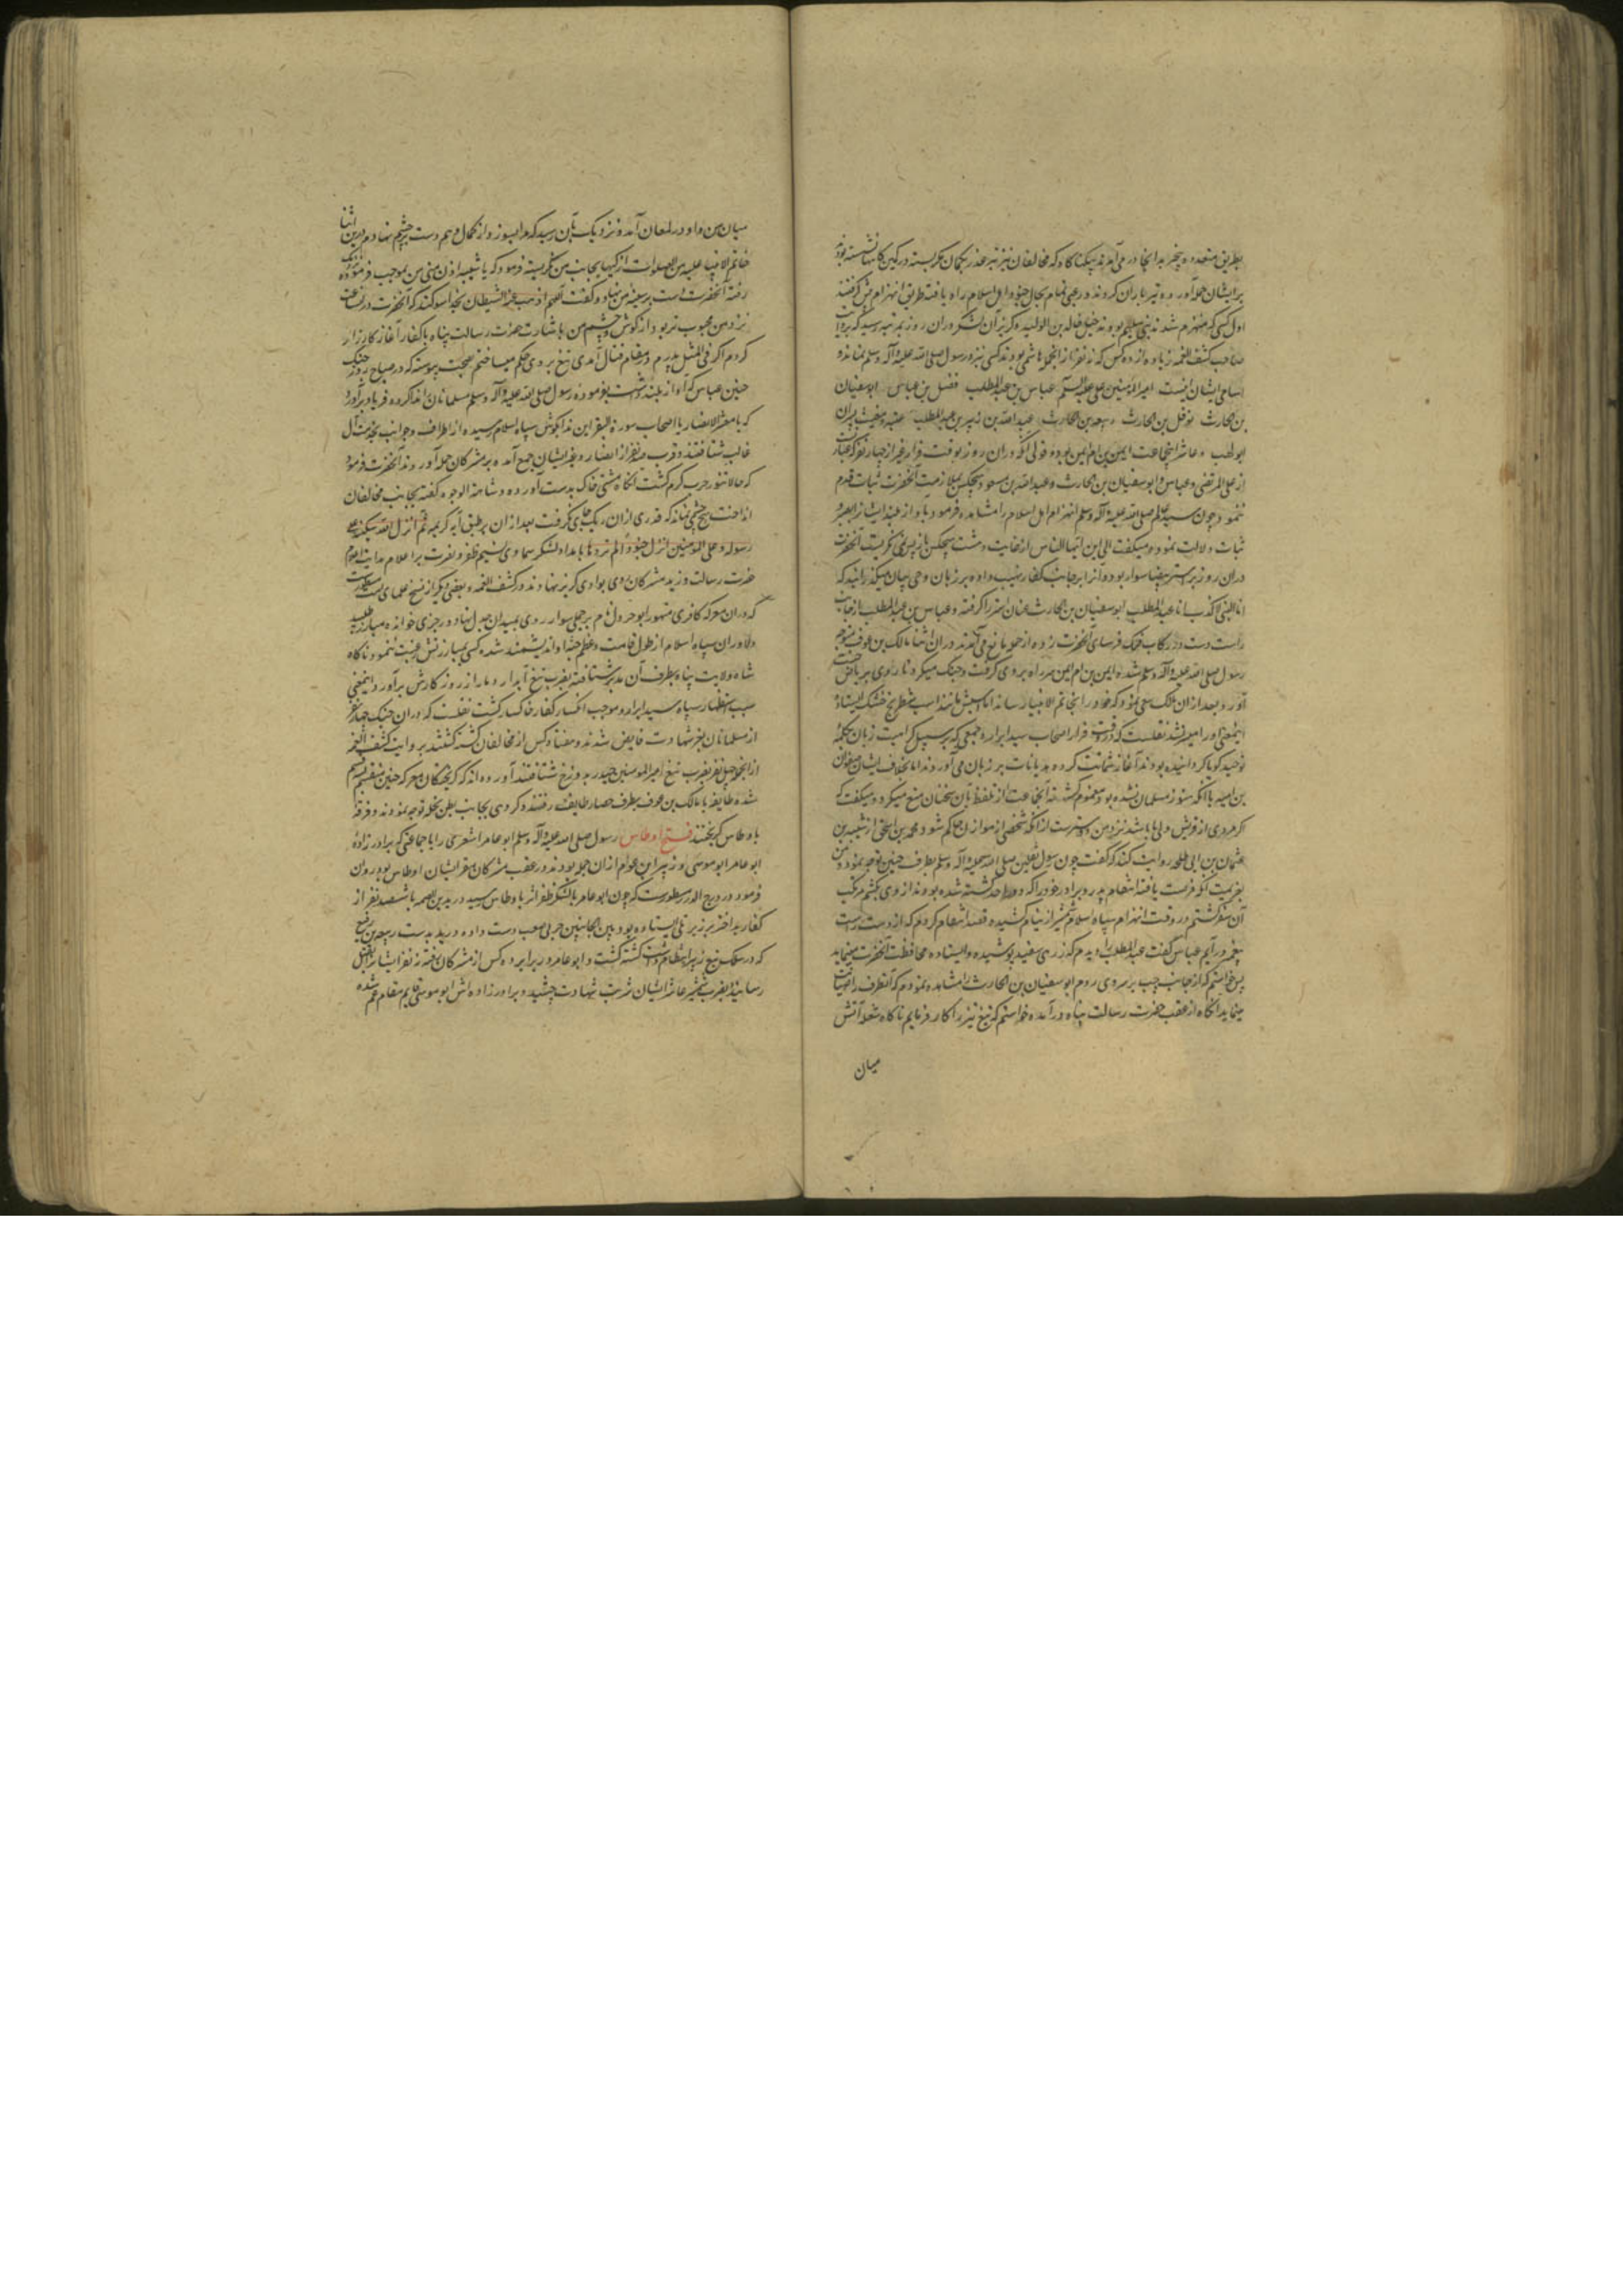 بطریق متعدده منجر بدانجا در می‌آمدند بیکناکاه که مخالفان نیز تیر غدر بکمان مکر بسته در کمین کاهها نشسته بودند
برایشان حمله آورده تیرباران کردند و رعبی تمام بحال جنود اهل اسلام راه یافته طریق انهزام پیش کرفتند
اول کسی که منهزم شدند بنی سلیم بودند خیل خالد بن الولید و کریز آن لشکر دران روز بمرتبه رسید که بروایت
صاحب کشف الغمه زیاده از ده کس که نه نفر از انجمله هاشمی بودند کسی نزد رسول صلی الله علیه و آله وسلم نماند و
اسامی ایشان اینست امیر المؤمنین علی علیه السلم عباس بن عبد المطلب فضل بن عباس ابو سفیان
بن الحارث نوفل بن الحارث ربیعه بن الحارث عبد الله بن زبیر بن عبد المطلب عتبه و معتب پسران
ابو لهب و عاشر اینجماعت ایمن بن ام ایمن بوده و قولی آنکه دران روز بوقت فرار غیر از چهار نفر که عبارت
از علی المرتضی و عباس و ابو سفیان بن الحارث و عبد الله بن مسعود هیچکس بملازمت آنحضرت ثبات قدم
ننمود و چون سید عالم صلی الله علیه و آله وسلم انهزام اهل اسلام را مشاهده فرمود بآواز بلند ایشانرا بصبر و
ثبات دلالت نمود و میکفت الی این ایها الناس از غایت دهشت هیچکس باز پس نمی نکریست آنحضرت
دران روز بر استر بیضا سوار بود و آنرا بر جانب کفار نهیب داده بر زبان وحی بیان میکذرانید که
انا النبی لا کذب انا ابن عبد المطلب ابو سفیان بن الحارث عنان استر را کرفته و عباس بن عبد المطلب از جانب
راست دست در رکاب فلک فرسای آنحضرت زده از حمله مانع می‌آمدند دران اثنا مالک بن عوف متوجه
رسول صلی الله علیه و آله وسلم شده ایمن بن ام ایمن سر راه بر وی کرفت و جنک میکرد تا روی بریاض جنت
آورد بعد ازان مالک سعی نمود که خود را بخاتم الانبیا رساند اما اسبش مانند اسب شطرنج خشک ایستاده
اینمعنی او را میسر نشد نقلست که در وقت فرار اصحاب سید ابرار جمعی که بر سبیل کراهیت زبان بکلمه
توحید کویا کردانیده بودند آغاز شماتت کرده هذیانات بر زبان می‌آوردند اما بخلاف ایشان صفوان
بن امیه با آنکه هنوز مسلمان نشده بود مغموم کشته آنجماعت را از تلفظ بآن سخنان منع میکرد و میکفت که
اکر مردی از قریش والی ما باشد نزد من دوسترست از آنکه شخصی از هوازن حاکم شود محمد بن اسحق از شیبه بن
عثمان بن ابی طلحه روایت کند که کفت چون رسول ثقلین صلی الله علیه و آله وسلم بطرف حنین توجه نمود من
بعزیمت آنکه فرصت یافته انتقام پدر و برادر خود را که در احد کشته شده بودند از وی بکشم مرتکب
آن سفر کشتم در وقت انهزام سپاه اسلام شمشیر از نیام کشیده قصد انتقام کردم که از دست راست
پیغمبر درآیم عباس بن عبد المطلب را دیدم که زرهی سفید پوشیده و ایستاده محافظت آنحضرت مینماید
پس خواستم که از جانب چپ بر سر وی روم ابو سفیان بن الحارث را مشاهده نمودم که آنطرف را صیانت
مینماید آنکاه از عقب حضرت رسالت پناه درآمده خواستم که تیغ تیز را کار فرمایم ناکاه شعله آتش
میان
میان من و او در لمعان آمد و نزدیک بآن رسید که مرا بسوزد از کمال وهم دست بر چشم نهادم درین اثنا
خاتم الانبیا علیه من الصلوات ازکیها بجانب من نکریسته فرمود که یا شیبه ادن منی من بموجب فرموده نزدیک
رفته آنحضرت دست بر سینه من نهاد و کفت اللهم اذهب عنه الشیطان بخدا سوکند که آنحضرت در آنساعت
نزد من محبوب تر بود از کوش و چشم من باشارت حضرت رسالت پناه با کفار آغاز کارزار
کردم اکر فی المثل پدرم در مقام قتال آمدی تیغ بر وی حکم میساختم بصحت پیوسته که در صباح روز جنک
حنین عباس که آواز بلند داشت بفرموده رسول صلی الله علیه و آله وسلم مسلمانان را ندا کرده فریاد برآورد
که یا معشر الانصار یا اصحاب سورة البقر این ندا بکوش سپاه اسلام رسیده از اطراف و جوانب بخدمت آل
غالب شتافتند و قرب صد نفر از انصار و غیر ایشان جمع آمده بر مشرکان حمله آوردند آنحضرت فرمود
که حالا تنور حرب کرم کشت آنکاه مشتی خاک بدست آورده و شاهت الوجوه کفته بجانب مخالفان
انداخت هیچ چشمی نماند که قدری ازان ریک جای نکرفت بعد ازان بر طبق آیه کریمه ثم انزل الله سکینته علی
رسوله و علی المؤمنین و انزل جنودا لم تروها بامداد لشکر سماوی نسیم ظفر و نصرت بر اعلام هدایت اعلام
حضرت رسالت وزید مشرکان روی بوادی کریز نهادند در کشف الغمه و بعضی دیکر از نسخ علمای امت مسطورست
که دران معرکه کافری متهور ابو جرول نام بر جملی سوار روی بمیدان جدال نهاد و رجزی خوانده مبارز طلبید
دلاوران سپاه اسلام از طول قامت و عظم جثه او اندیشمند شده کسی بمبارزتش رغبت ننمود ناکاه
شاه ولایت پناه بطرف آن مدبر شتافته بضرب تیغ آبدار دمار از روزکارش برآورد و اینمعنی
سبب استظهار سپاه سید ابرار و موجب انکسار کفار خاکسار کشت نقلست که دران جنک چهار نفر
از مسلمانان بعز شهادت فایض شدند و هفتاد کس از مخالفان کشته کشتند بروایت کشف الغمه
از انجمله چهل نفر بضرب تیغ امیر المومنین حیدر بدوزخ شتافتند آورده‌اند که کریختکان معرکه حنین منقسم بسه قسم
شده طایفه با مالک بن عوف بطرف حصار طایف رفتند و کروهی بجانب بطن نخله توجه نمودند و فرقه
باوطاس کریختند فتح اوطاس رسول صلی الله علیه و آله وسلم ابو عامر اشعری را با جماعتی که برادرزاده
ابو عامر ابو موسی و زبیر ابن عوام ازان جمله بودند در عقب مشرکان که مقر ایشان اوطاس بود روان
فرمود در درج الدرر مسطورست که چون ابو عامر با لشکر ظفر اثر باوطاس رسید درید بن الصمه با ششصد نفر از
کفار بد اختر بر زبر تلی ایستاده بود و بین الجانبین حربی صعب دست داده درید بدست ربیعه بن رفیع
که در سلک تبع زبیر انتظام داشت کشته کشت و ابو عامر در برابر ده کس از مشرکان رفته نه نفر ایشانرا بقتل
رسانید و بضرب شمشیر عاشر ایشان شربت شهادت چشید و برادرزاده‌اش ابو موسی قایم مقام عم شده